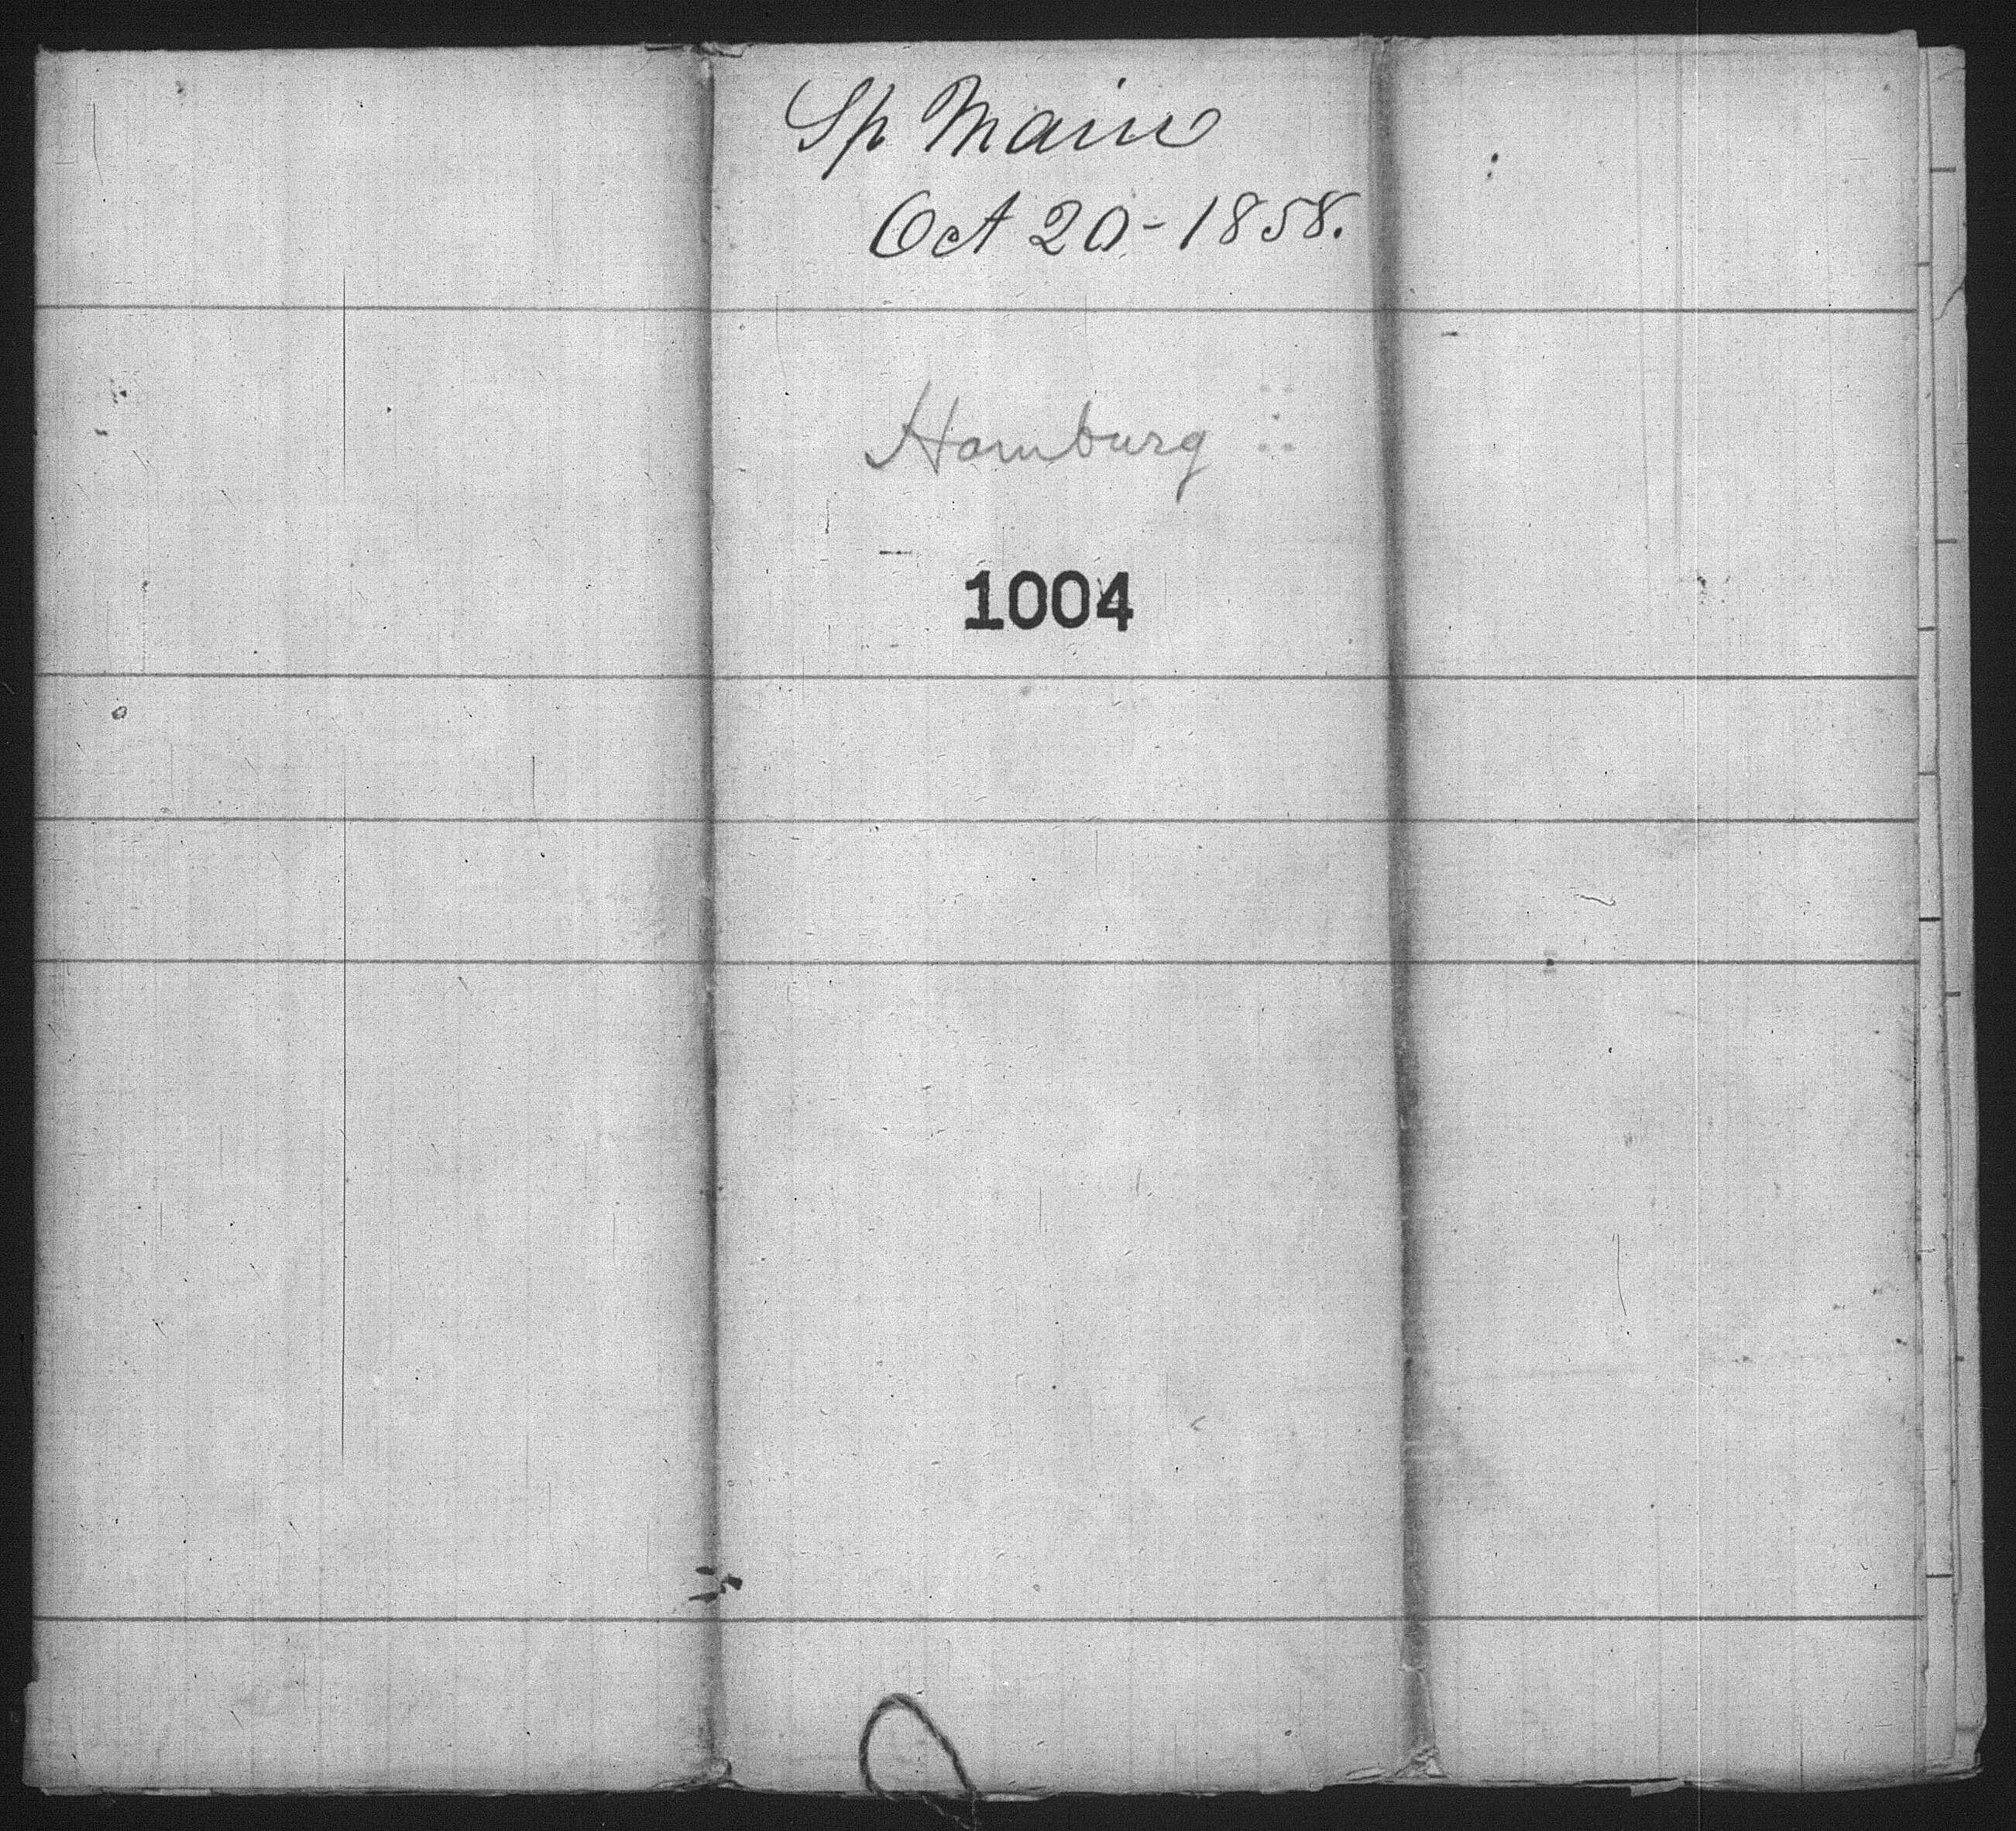 Sp Main
Oct 20-1858.
Hamburg
1004